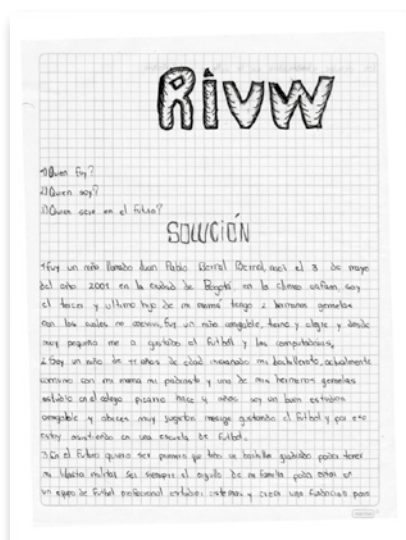 RiVW
1)Quien fuy?
2)Quien soy?
3)Quien sere en el futuro?
SOLUCIÓN
1 fuy un niño llamado Juan Pablo Bernal Bernal, naci el 3 de mayo
del año 2001 en la ciudad de Bogotá en la clinica cafam, soy
el tercer y ultimo hijo de mi mamá tengo 2 hermanas gemelas
con las cuales me convivi, fuy un niño amigable, tierno y alegre y desde
muy pequeño me a gustado el futboll y las computadoras,
2 Soy un niño de 11 años de edad iniciando mi bachillerato, actualmente
convivo con mi mama mi padrasto y una de mis hermanas gemelas
estudio en el colegio picarno hace 4 años soy un buen estudiante
amigable y abeces muy jugeton me sige gustando el futbol y por eso
estoy asistiendo en una escuela de futbol.
3 En el futuro quiero ser primero que todo un bachiller graduado poder tener
mi libreta militar ser siempre el orgullo de mi familia poder estar en
un equipo de futbol profecional estudiar sistemas y crear una fundacion para